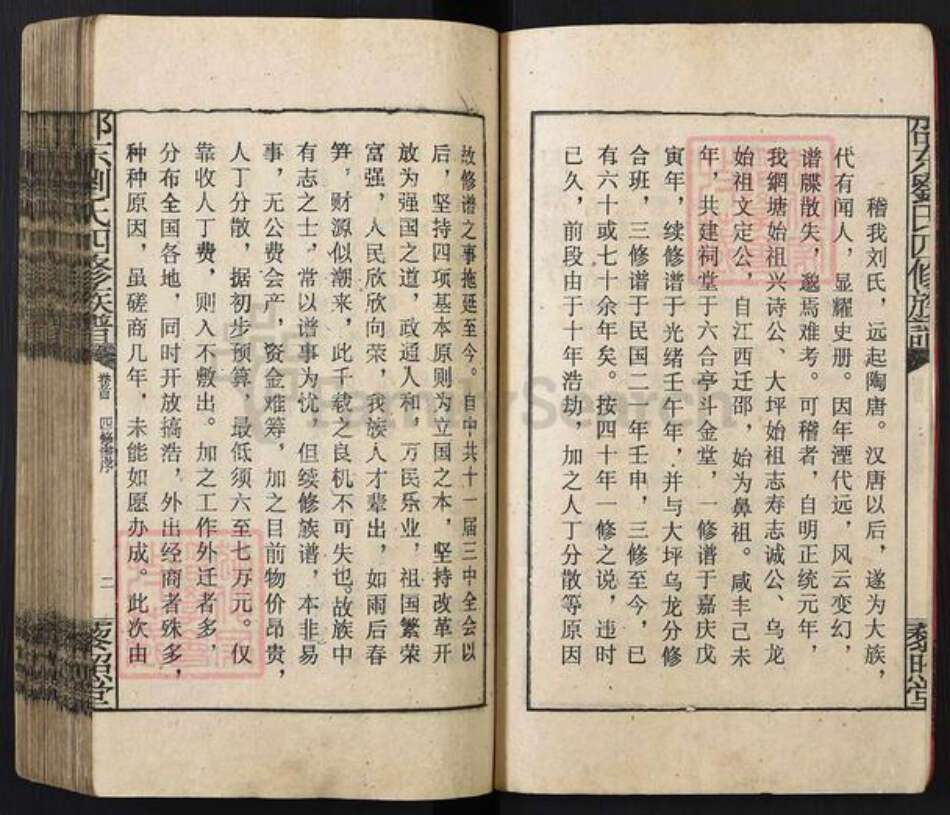 稽我刘氏，远起陶唐。汉唐以后，遂为大族，
代有闻人，显耀史册。因年湮代远，风云变幻，
谱牒散失，邈焉难考。可稽者，自明正统元年，
我網塘始祖兴诗公、大坪始祖志寿志诚公、乌龙
始祖文定公，自江西迁邵，始为鼻祖。咸丰己未
年，共建祠堂于六合亭斗金堂，一修谱于嘉庆戊
寅年，续修谱于光绪壬午年，并与大坪乌龙分修
合班，三修谱于民国二一年壬申，三修至今，已
有六十或七十余年矣。按四十年一修之说，违时
已久，前段由于十年浩劫，加之人丁分散等原因
故修谱之事拖延至今。自中共十一届三中全会以
后，坚持四项基本原则为立国之本，坚持改革开
放为强国之道，政通人和，万民乐业，祖国繁荣
富强，人民欣欣向荣，我族人才辈出，如雨后春
笋，财源似潮来，此千载之良机不可失也。故族中
有志之士，常以谱事为忧，但续修族谱，本非易
事，无公费会产，资金难筹，加之目前物价昂贵，
人丁分散，据初步预算，最低须六至七万元。仅
靠收人丁费，则入不敷出。加之工作外迁者多，
分布全国各地，同时开放搞浩，外出经商者殊多，
种种原因，虽磋商几年，未能如愿办成。此次由
邵东劉氏四修族譜
卷首
二
藜照堂
FamilySearch